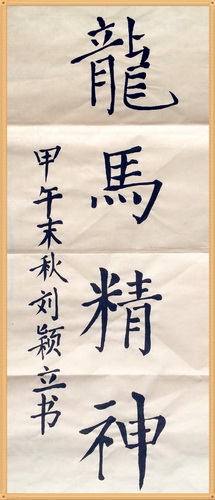 龍馬精神
甲午末秋刘颖立书